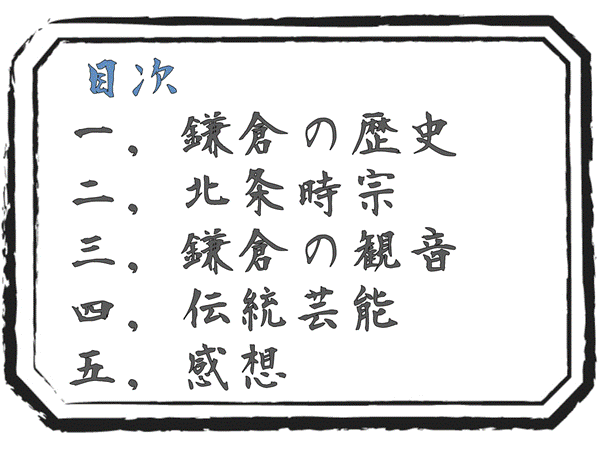 目次
一，鎌倉の歴史
二，北条時宗
三，鎌倉の観音
四，伝統芸能
五，感想